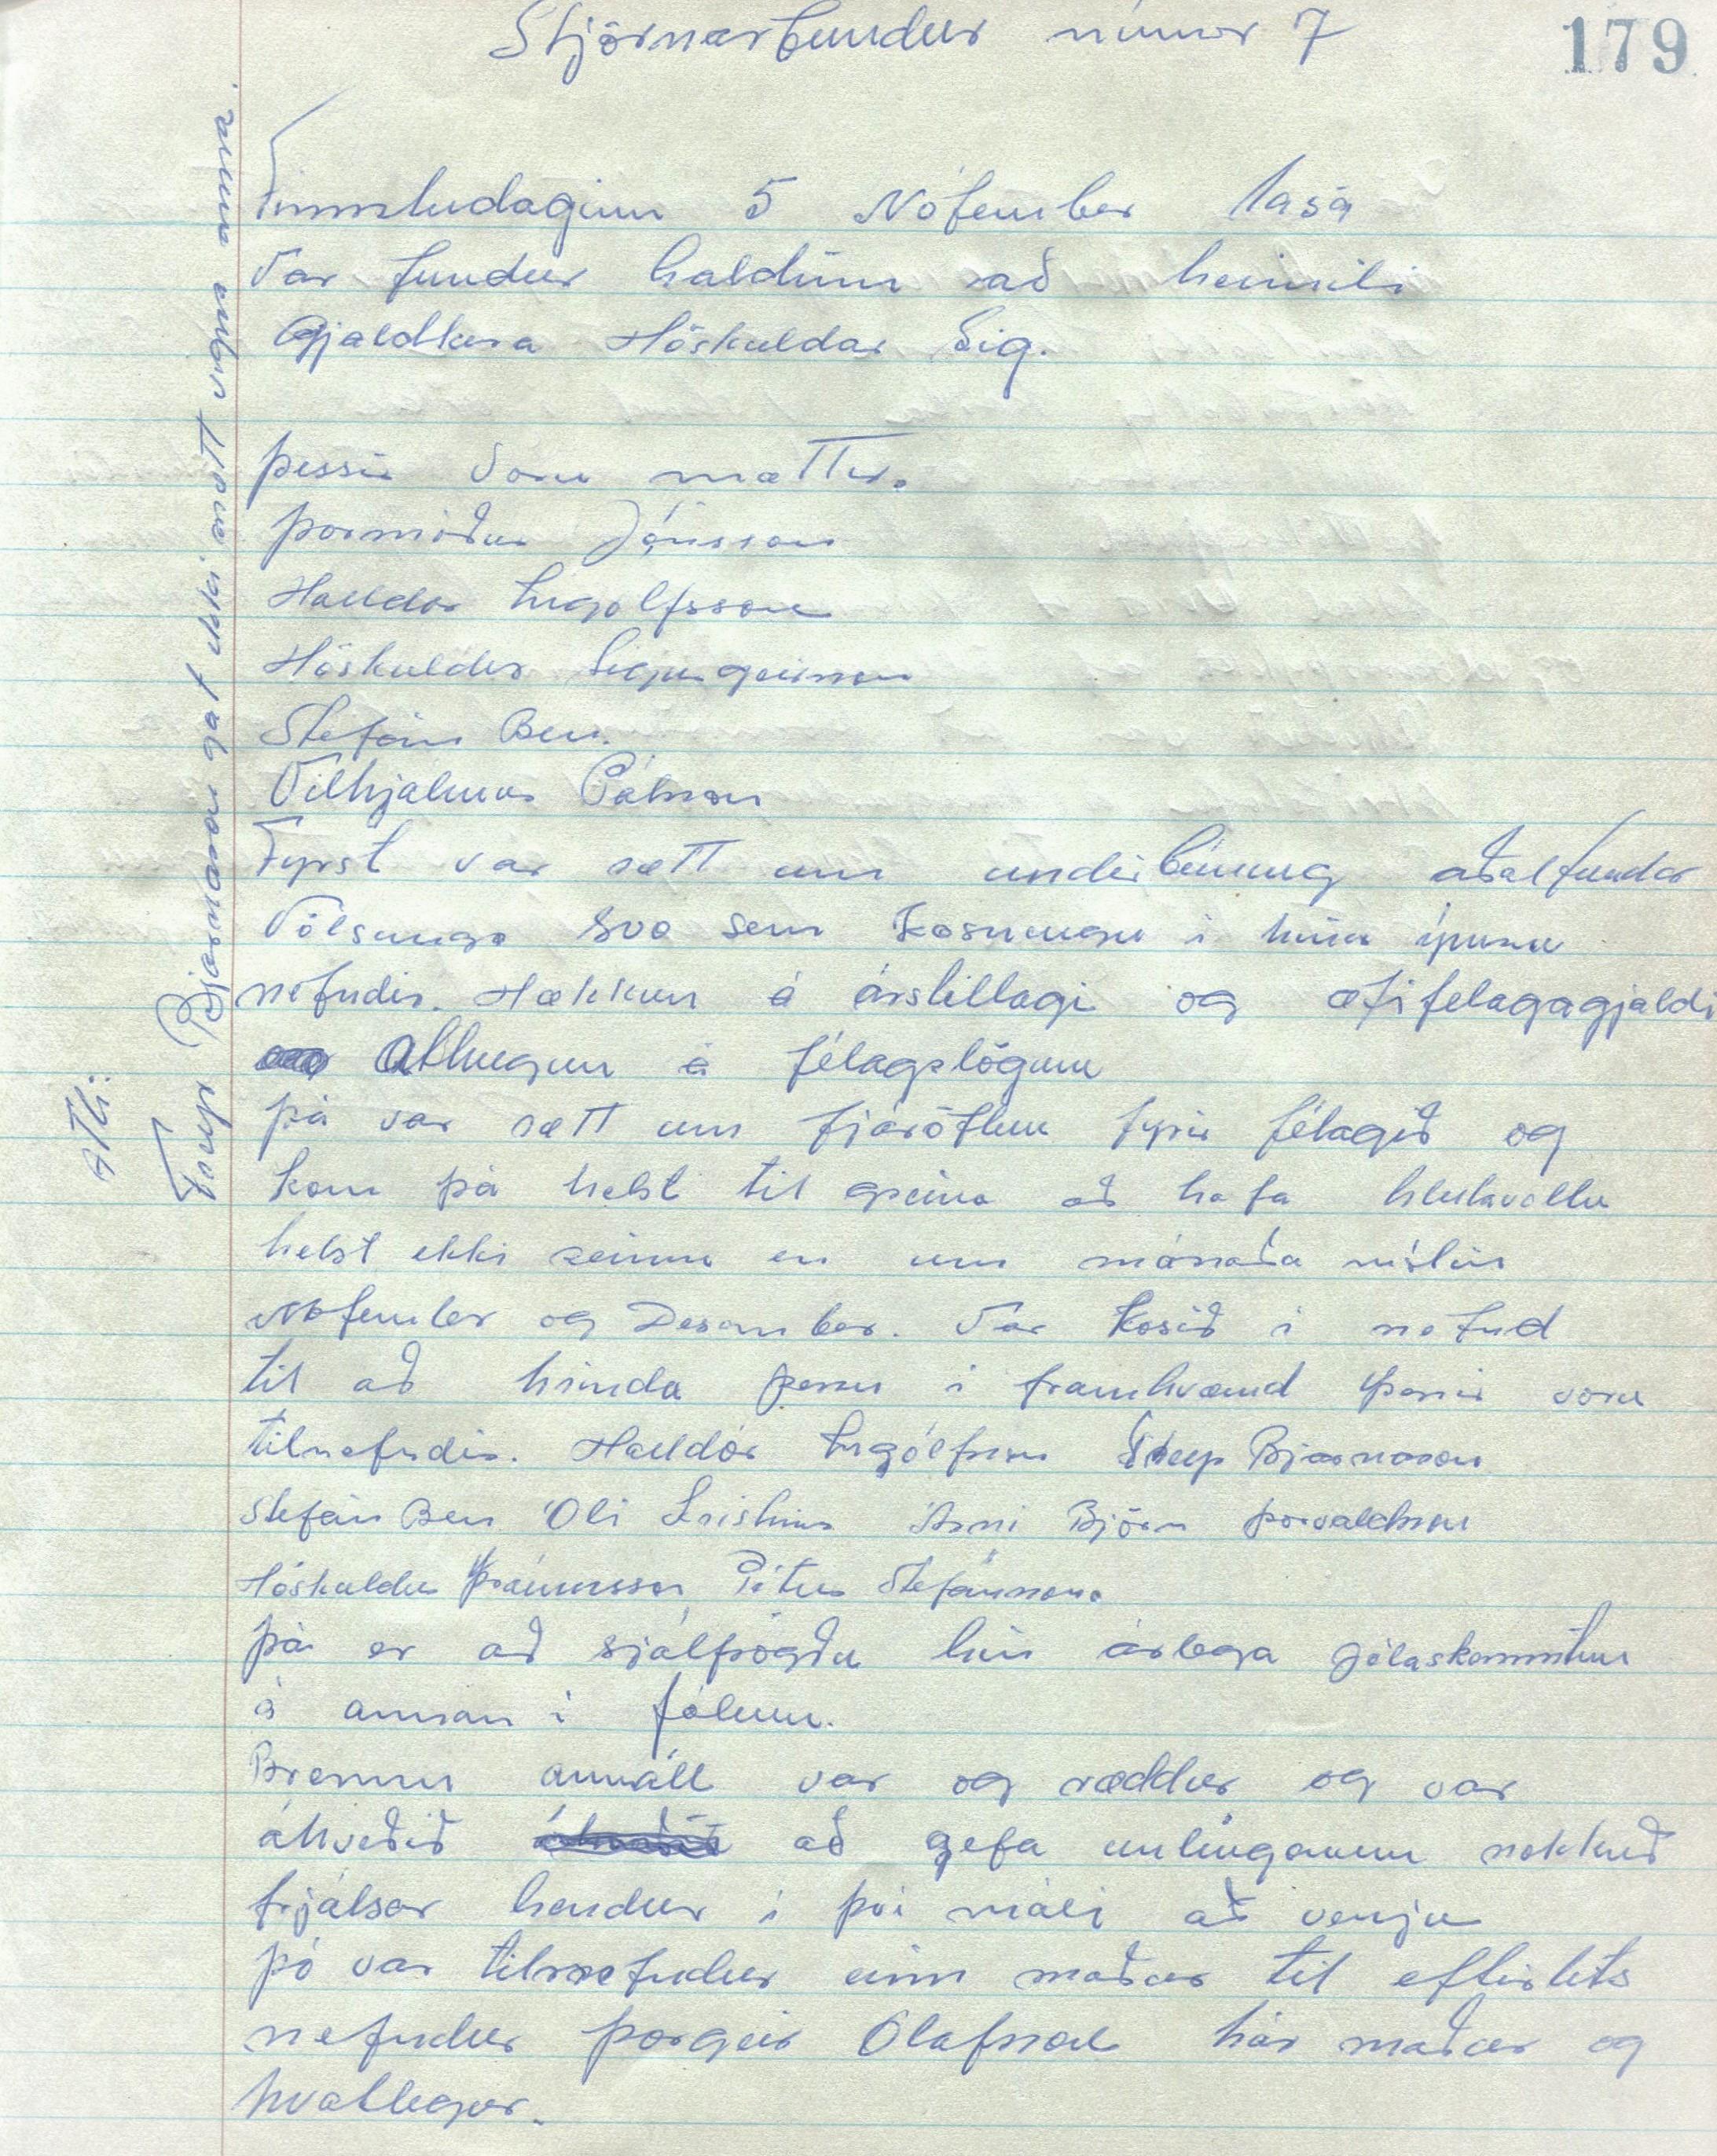 Stjörnarfundur númer 7
179
Fimmtudaginn 5 Nófember 1959
Var fundur haldinn að heimili
Gjaldkera Höskuldar Sig.
þessir Voru mættir.
þormóður Jónsson
Halldór Ingolfsson
Höskuldur Sigurgeirsson
Stefán Ben.
Vilhjalmur Pálsson
Fyrst var rætt um undirbúning aðalfundar
Völsunga svo sem kosningu i hina ýmsu
nefndir. Hækkun á árstillagi og æfifelagagjaldi
Athugun á félagslögum
þá var rætt um fjáröflun fyrir félagið og
kom þá helst til greina að hafa hlutaveltu
helst ekki seinna en um mánaða mótin
Nófember og Desember. Var kosið i nefnd
til að hrinda þessu i framkvæmd þessir voru
tilnefndir. Halldór Ingólfsson Freyr Bjarnason
Stefán Ben Óli Kristins Árni Björn þorvaldsson
Höskuldur þráinsson, Pétur Stefánsson.
þá er að sjálfsögðu hin árlega jólaskemmtun
á annan i jólum.
Brennu annáll var og ræddur og var
ákveðið að gefa unlingunum nokkuð
frjálsar hendur i því máli að venju
þó var tilnefndur einn maður til eftirlits
nefndur þorgeir Olafsson hár maður og
hvatlegur.
ATh:
Freyr Bjarnason gat ekki mætt vegna anna.